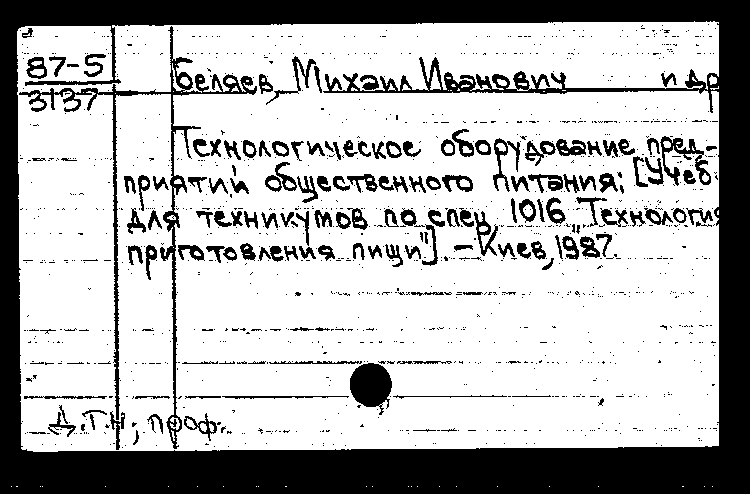 87-5
3137
Беляев, Михаил Иванович и др
Технологическое оборудование пред-
приятий общественного питания; [Учеб.
для техникумов по спец. 1016 „Технология
приготовления пищи"]. – Киев, 1987.
Д.Т.Н; проф.